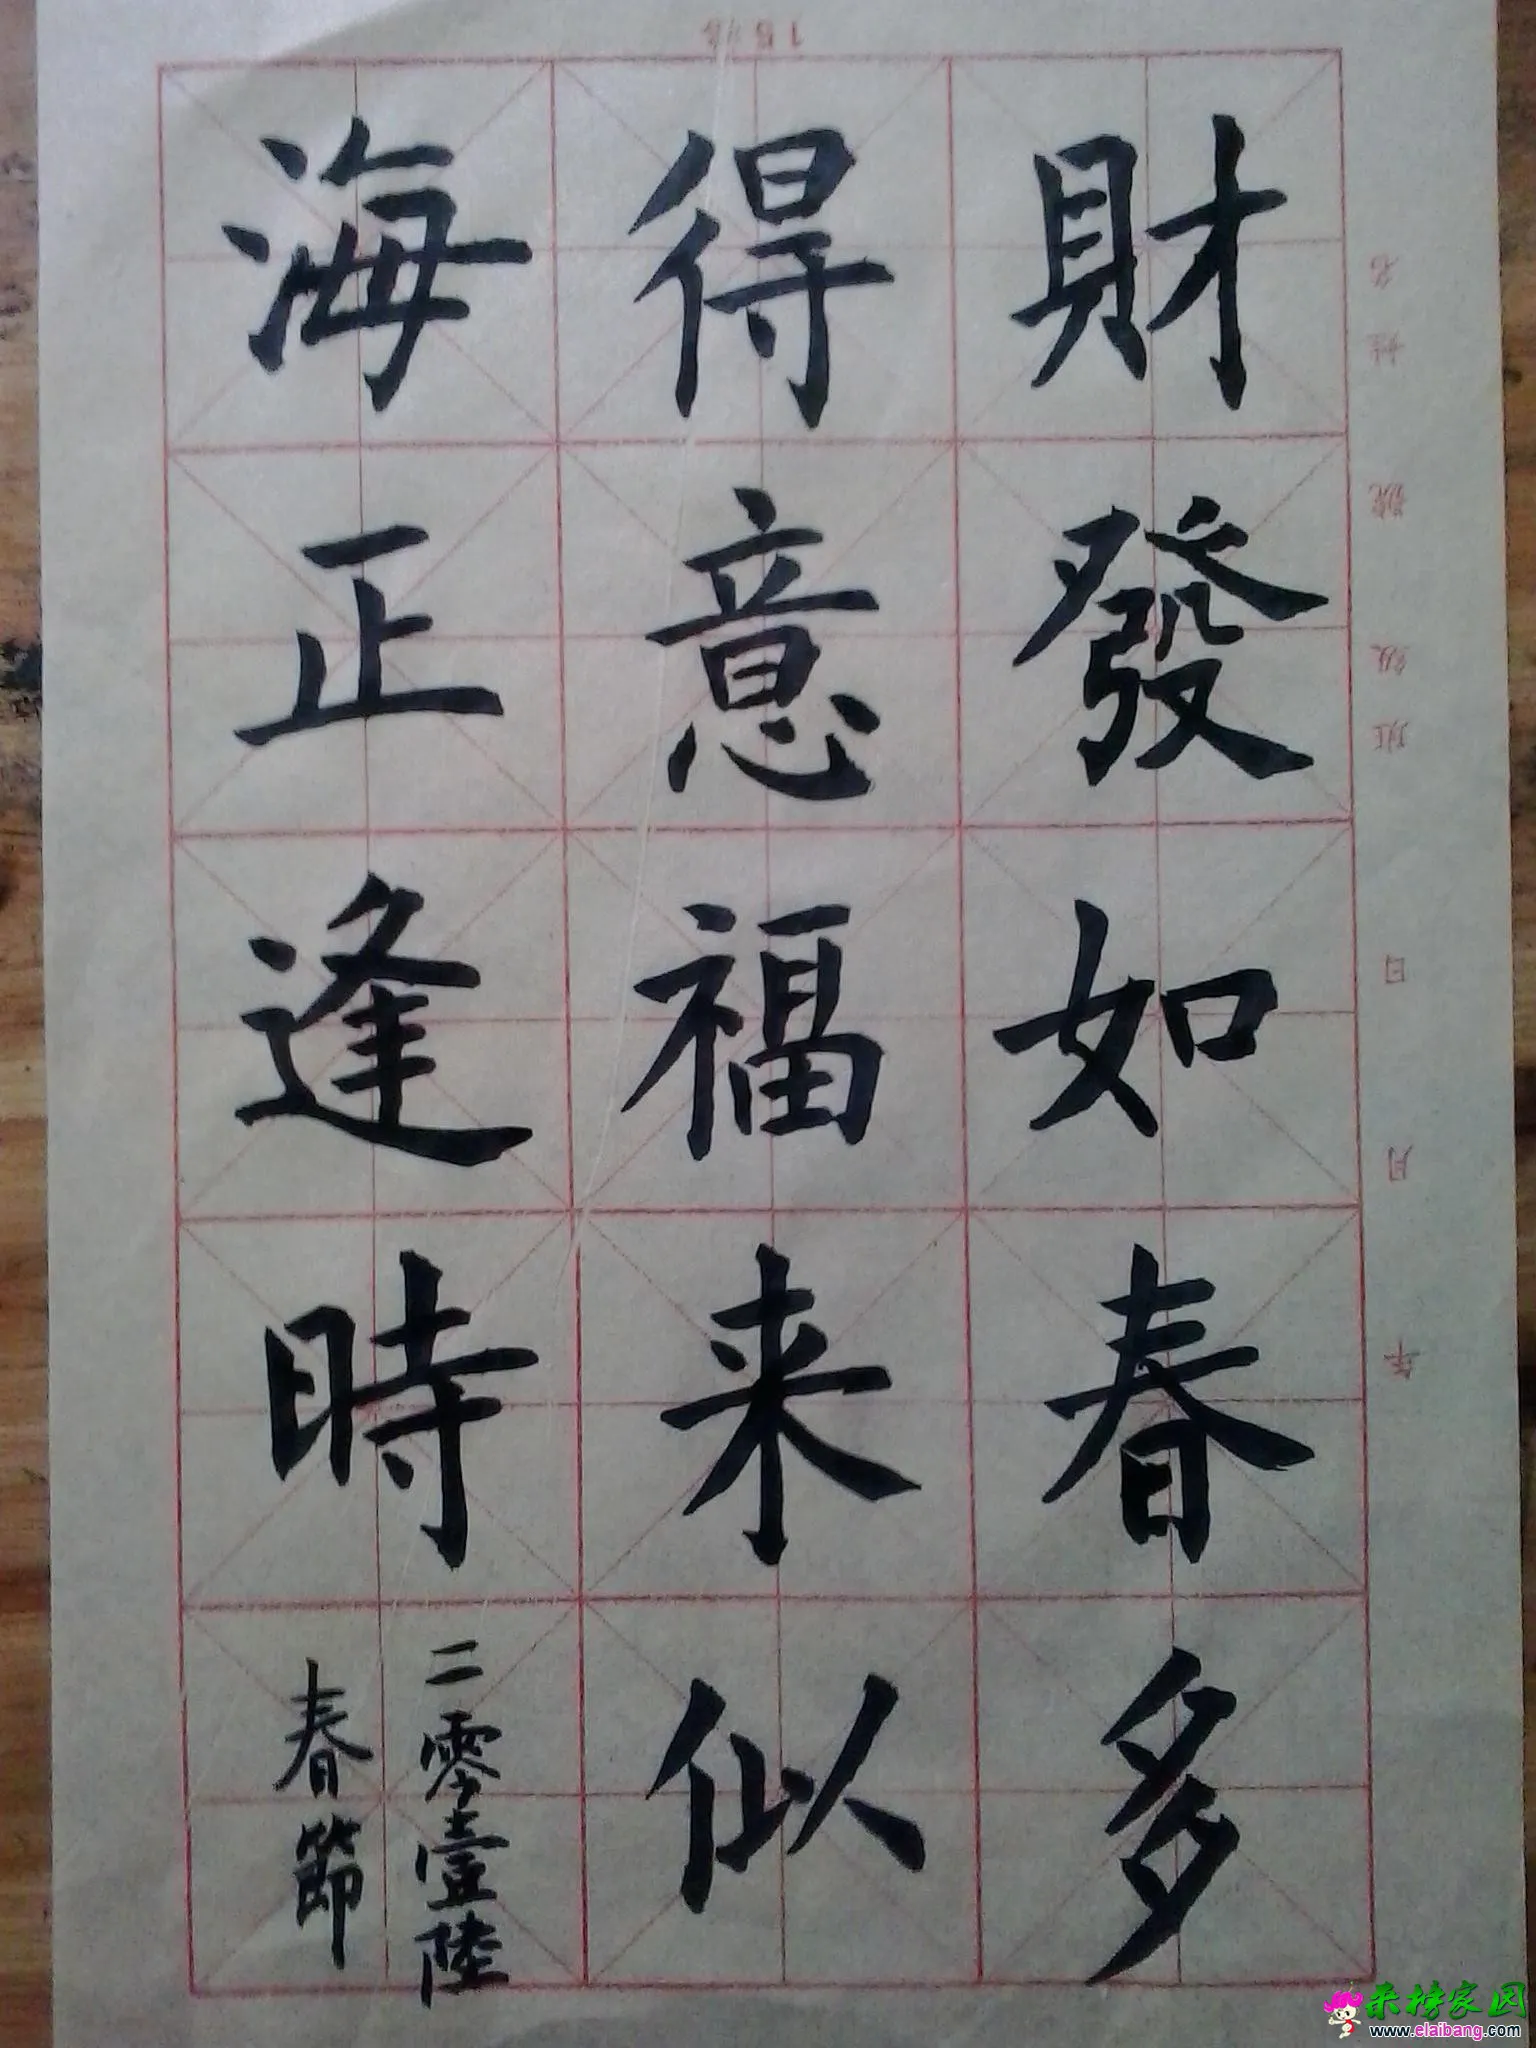 財發如春多
得意福来似
海正逢時
二零壹陸
春節
年 月 日 班級 號 姓名
来榜家园
www.elaibang.com